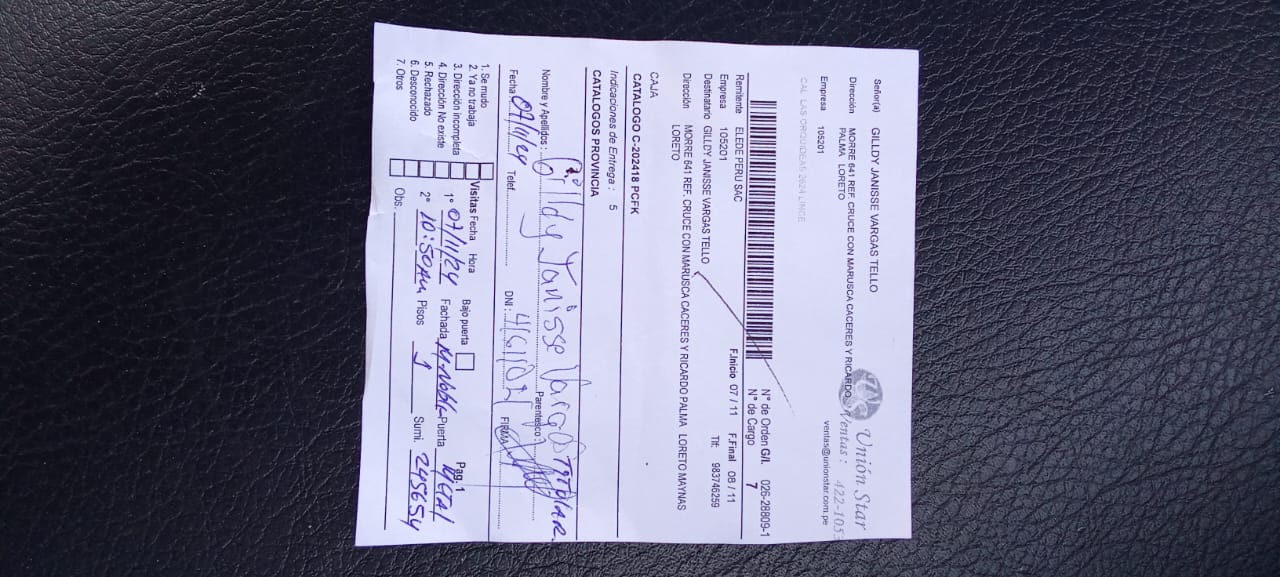 Señor(a) GILLDY JANISSE VARGAS TELLO
Unión Star
Dirección MORRE 641 REF. CRUCE CON MARUSCA CACERES Y RICARDO
PALMA LORETO
Ventas : 422-105
Empresa 105201
ventas@unionstar.com.pe
CAL. LAS ORQUIDEAS 2624 LINCE
N° de Orden G/I. 026-28809-1
N° de Cargo 7
Remitente ELEDE PERU SAC
F.Inicio 07 / 11 F.Final 08 / 11
Empresa 105201
Tlf: 983746259
Destinatario GILLDY JANISSE VARGAS TELLO
Dirección MORRE 641 REF. CRUCE CON MARUSCA CACERES Y RICARDO PALMA LORETO MAYNAS
LORETO
CAJA
CATALOGO C-202418 PCFK
Indicaciones de Entrega : 5
CATALOGOS PROVINCIA
Nombre y Apellidos : Gilldy Janisse Vargas Parentesco : TITULAR
Fecha 07/11/24 Telef. DNI : FIRMA
1. Se mudo
2. Ya no trabaja
3. Dirección incompleta
4. Dirección No existe
5. Rechazado
6. Desconocido
7. Otros
Visitas Fecha Hora Bajo puerta Pag. 1
1° 07/11/24 Fachada M. Noble Puerta Metal
2° 10:50AM Pisos 1 Sumi. 245654
Obs: